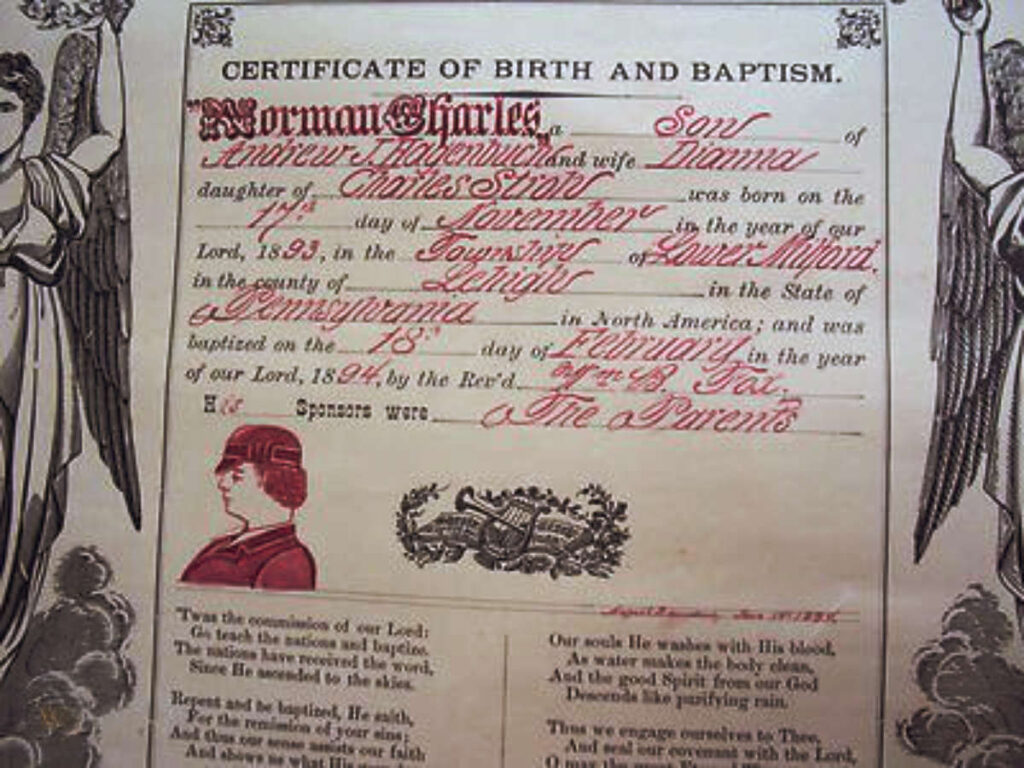 CERTIFICATE OF BIRTH AND BAPTISM.
"Norman Charles," a Son of
Andrew J. Hagenbuch and wife Dianna
daughter of Charles Strohl was born on the
17th day of November in the year of our
Lord, 1893, in the Township of Lower Milford.
in the county of Lehigh in the State of
Pennsylvania in North America; and was
baptized on the 18th day of February in the year
of our Lord, 1894, by the Rev'd Wm B. Fox.
His Sponsors were The Parents
'Twas the commission of our Lord:
Go teach the nations and baptize.
The nations have received the word,
Since He ascended to the skies.
Repent and be baptized, He saith,
For the remission of your sins;
And thus our sense assists our faith
And shows us what His
Our souls He washes with His blood,
As water makes the body clean,
And the good Spirit from our God
Descends like purifying rain.
Thus we engage ourselves to Thee,
And seal our covenant with the Lord,
O may the great